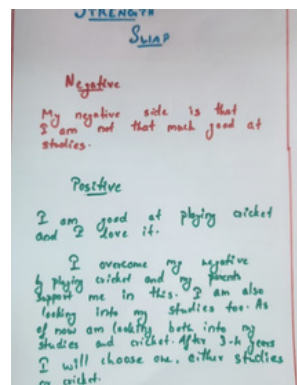 STRENGTH
SWAP
Negative
My negative side is that
I am not that much good at
studies.
Positive
I am good at playing cricket
and I love it.
I overcome my negative
by playing cricket and my parents
support me in this. I am also
looking into my studies too. As
of now am looking both into my
studies and cricket. After 3-4 years
I will choose one, either studies
or cricket.